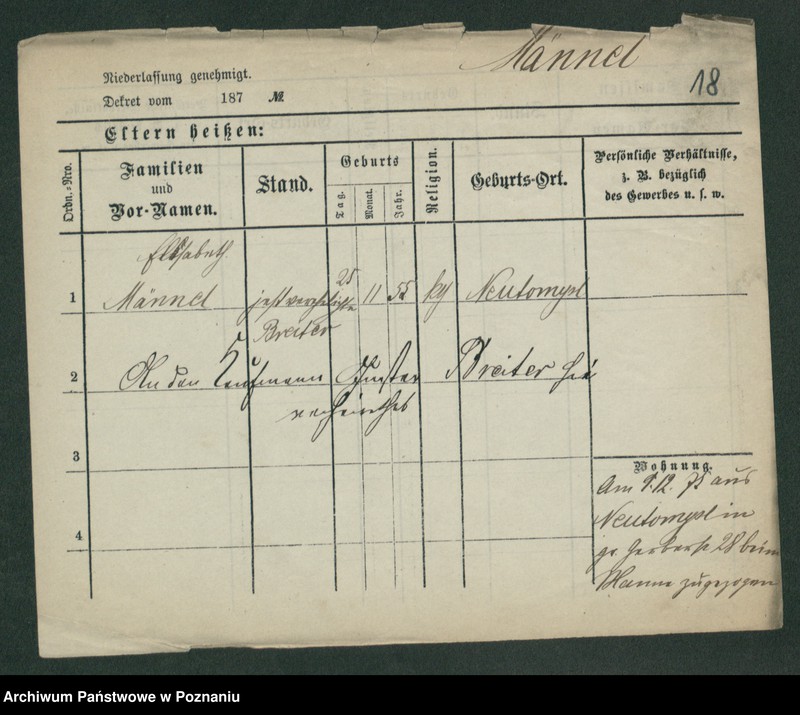 Männel
18
Niederlassung genehmigt.
Dekret vom 187 №
Eltern heißen:
Ordn.-Nro.
Familien
und
Vor-Namen.
Stand.
Geburts
Tag.
Monat.
Jahr.
Religion.
Geburts-Ort.
Persönliche Verhältnisse,
z. B. bezüglich
des Gewerbes u. s. w.
Elisabeth
1 Männel jetzt verehelichte 28 11 55 Neutomysl
Breiter
2 An den Kaufmann Breiter
verheirathet
3
4
Wohnung.
Am 9.12. 75 aus
Neutomysl in
gr. Gerberst 28 beim
Manne zugezogen
Archiwum Państwowe w Poznaniu